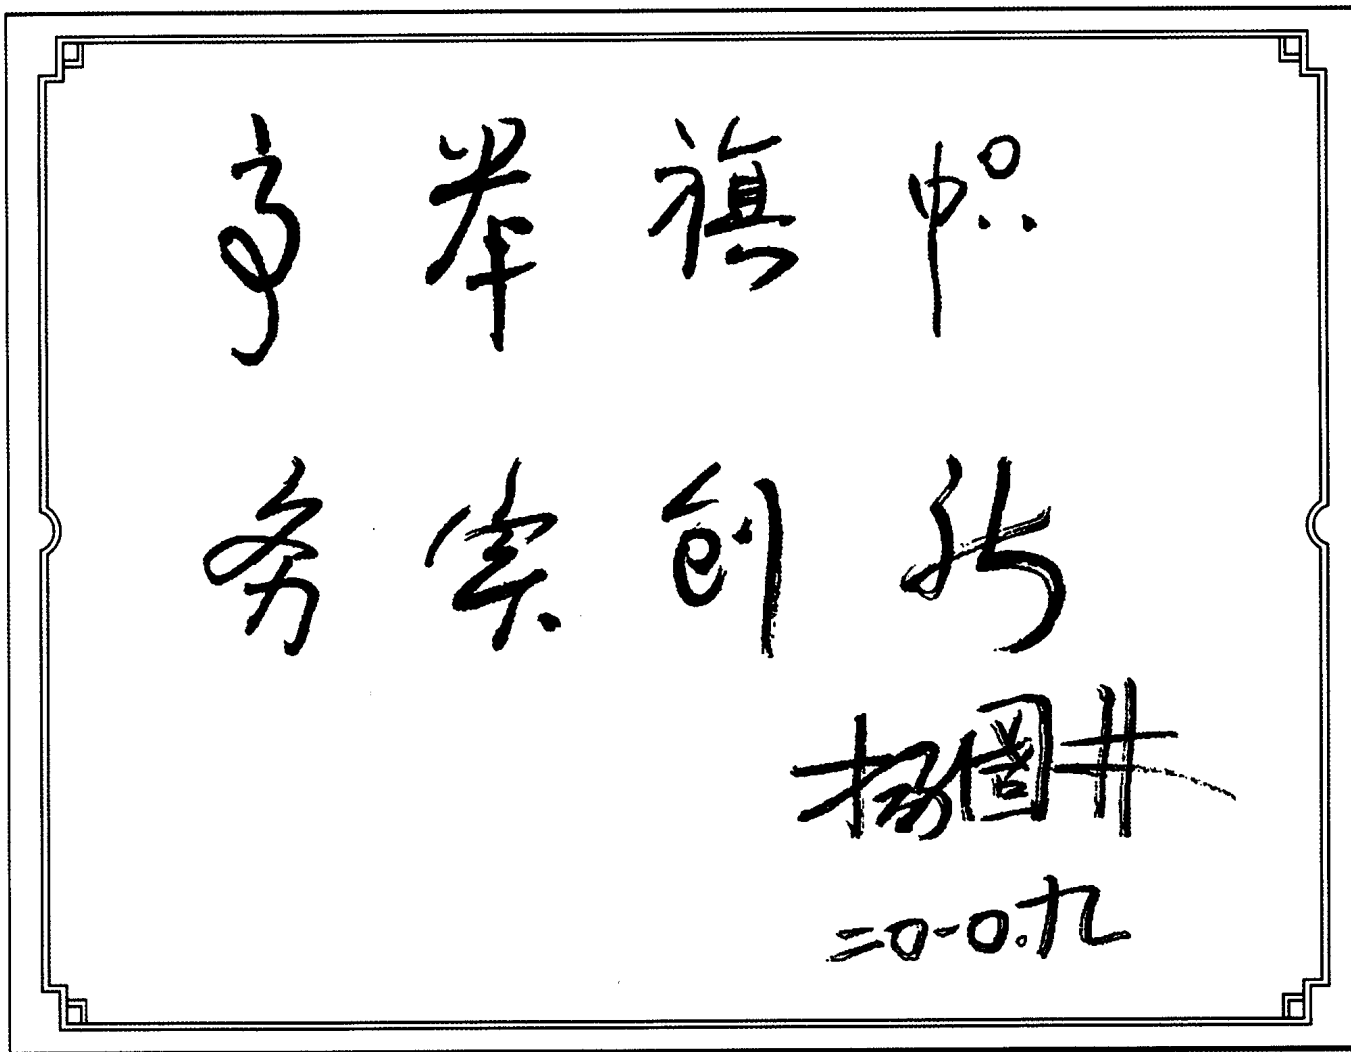 高举旗帜
务实创新
杨国井
二〇一〇.九